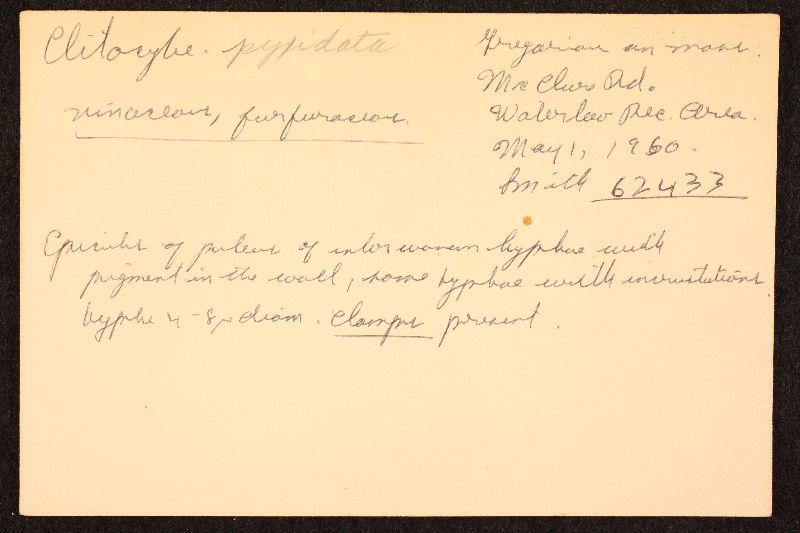 Clitocybe. pyxidata
vinaceous, furfuraceous.
Gregarious on moss.
McClure Rd.
Waterloo Rec. Area.
May 1, 1960.
Smith 62433
Epicutis of pileus of interwoven hyphae with
pigment in the wall, some hyphae with incrustations
hyphe 4-8μ diam. Clamps present.